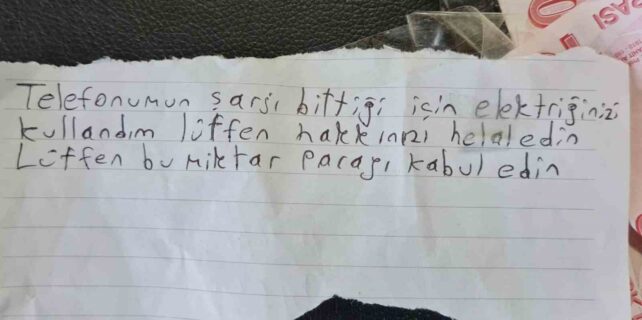 Telefonumun şarsı bittiği için elektriğinizi
kullandım lütfen hakkınızı helal edin
Lütfen bu miktar parayı kabul edin
PASI